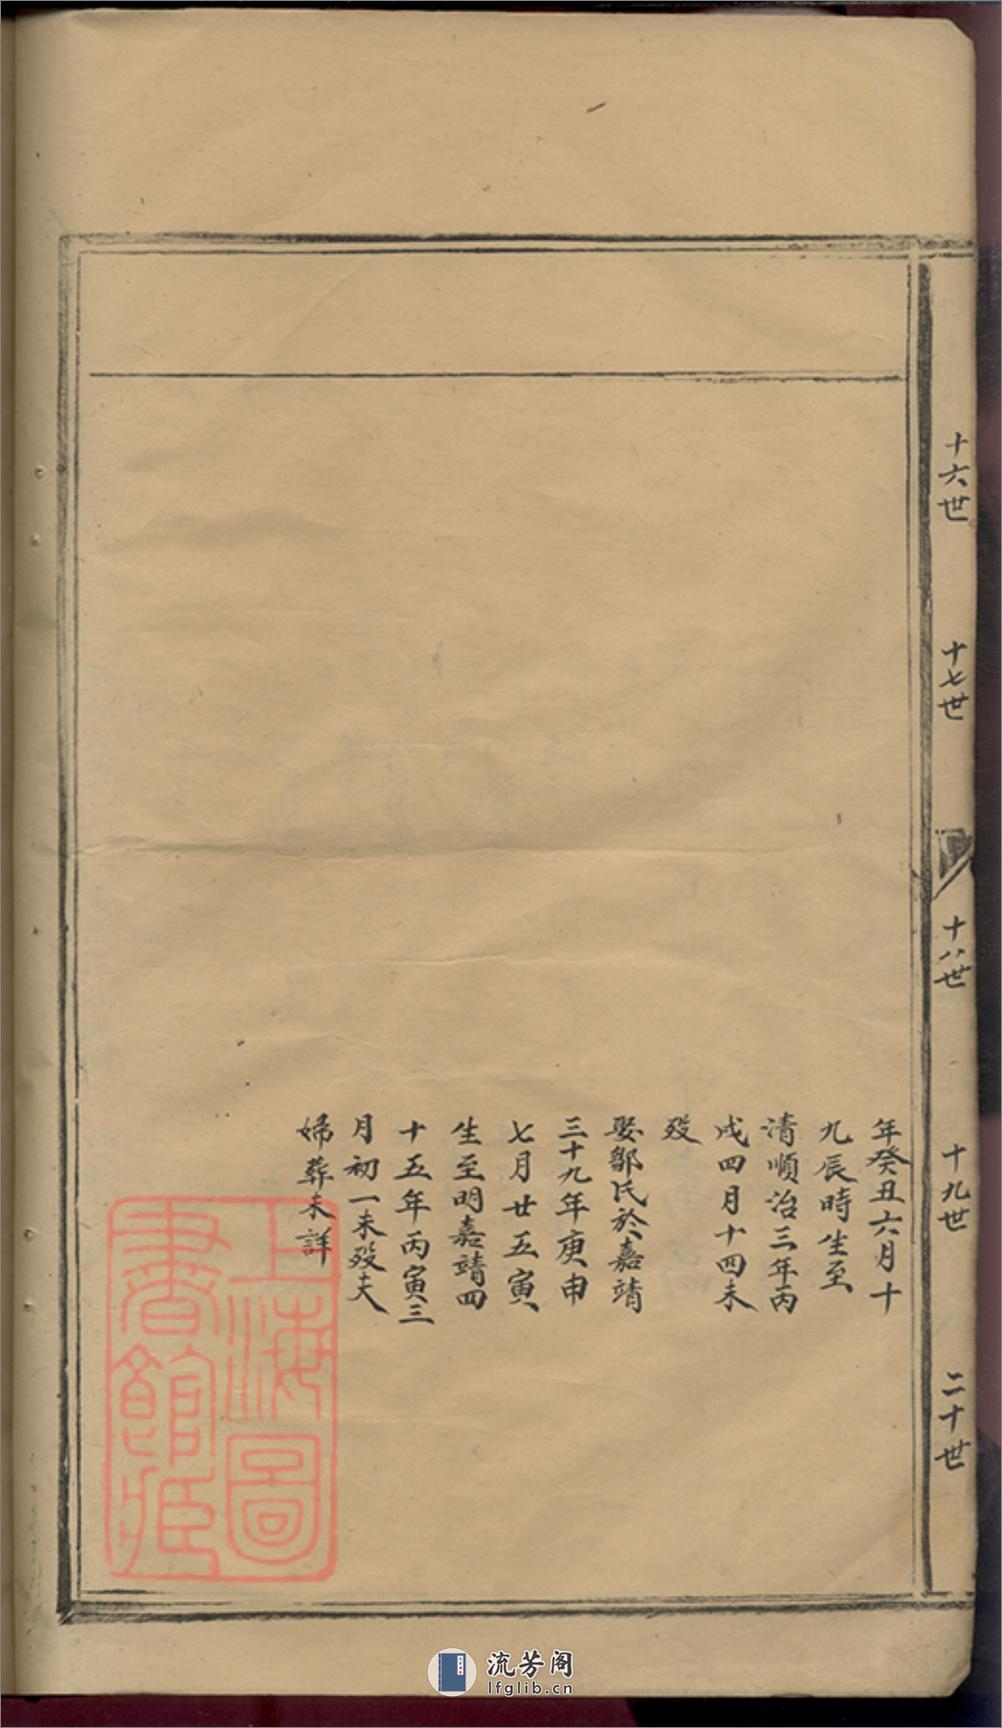 十六世
十七世
十八世
十九世
二十世
年癸丑六月十
九辰時生至
清順治三年丙
戌四月十四未
歿
娶鄒氏於嘉靖
三十九年庚申
七月廿五寅
生至明嘉靖四
十五年丙寅三
月初一未歿夫
婦葬未詳
上海圖
書館藏
流芳阁
lfglib.cn